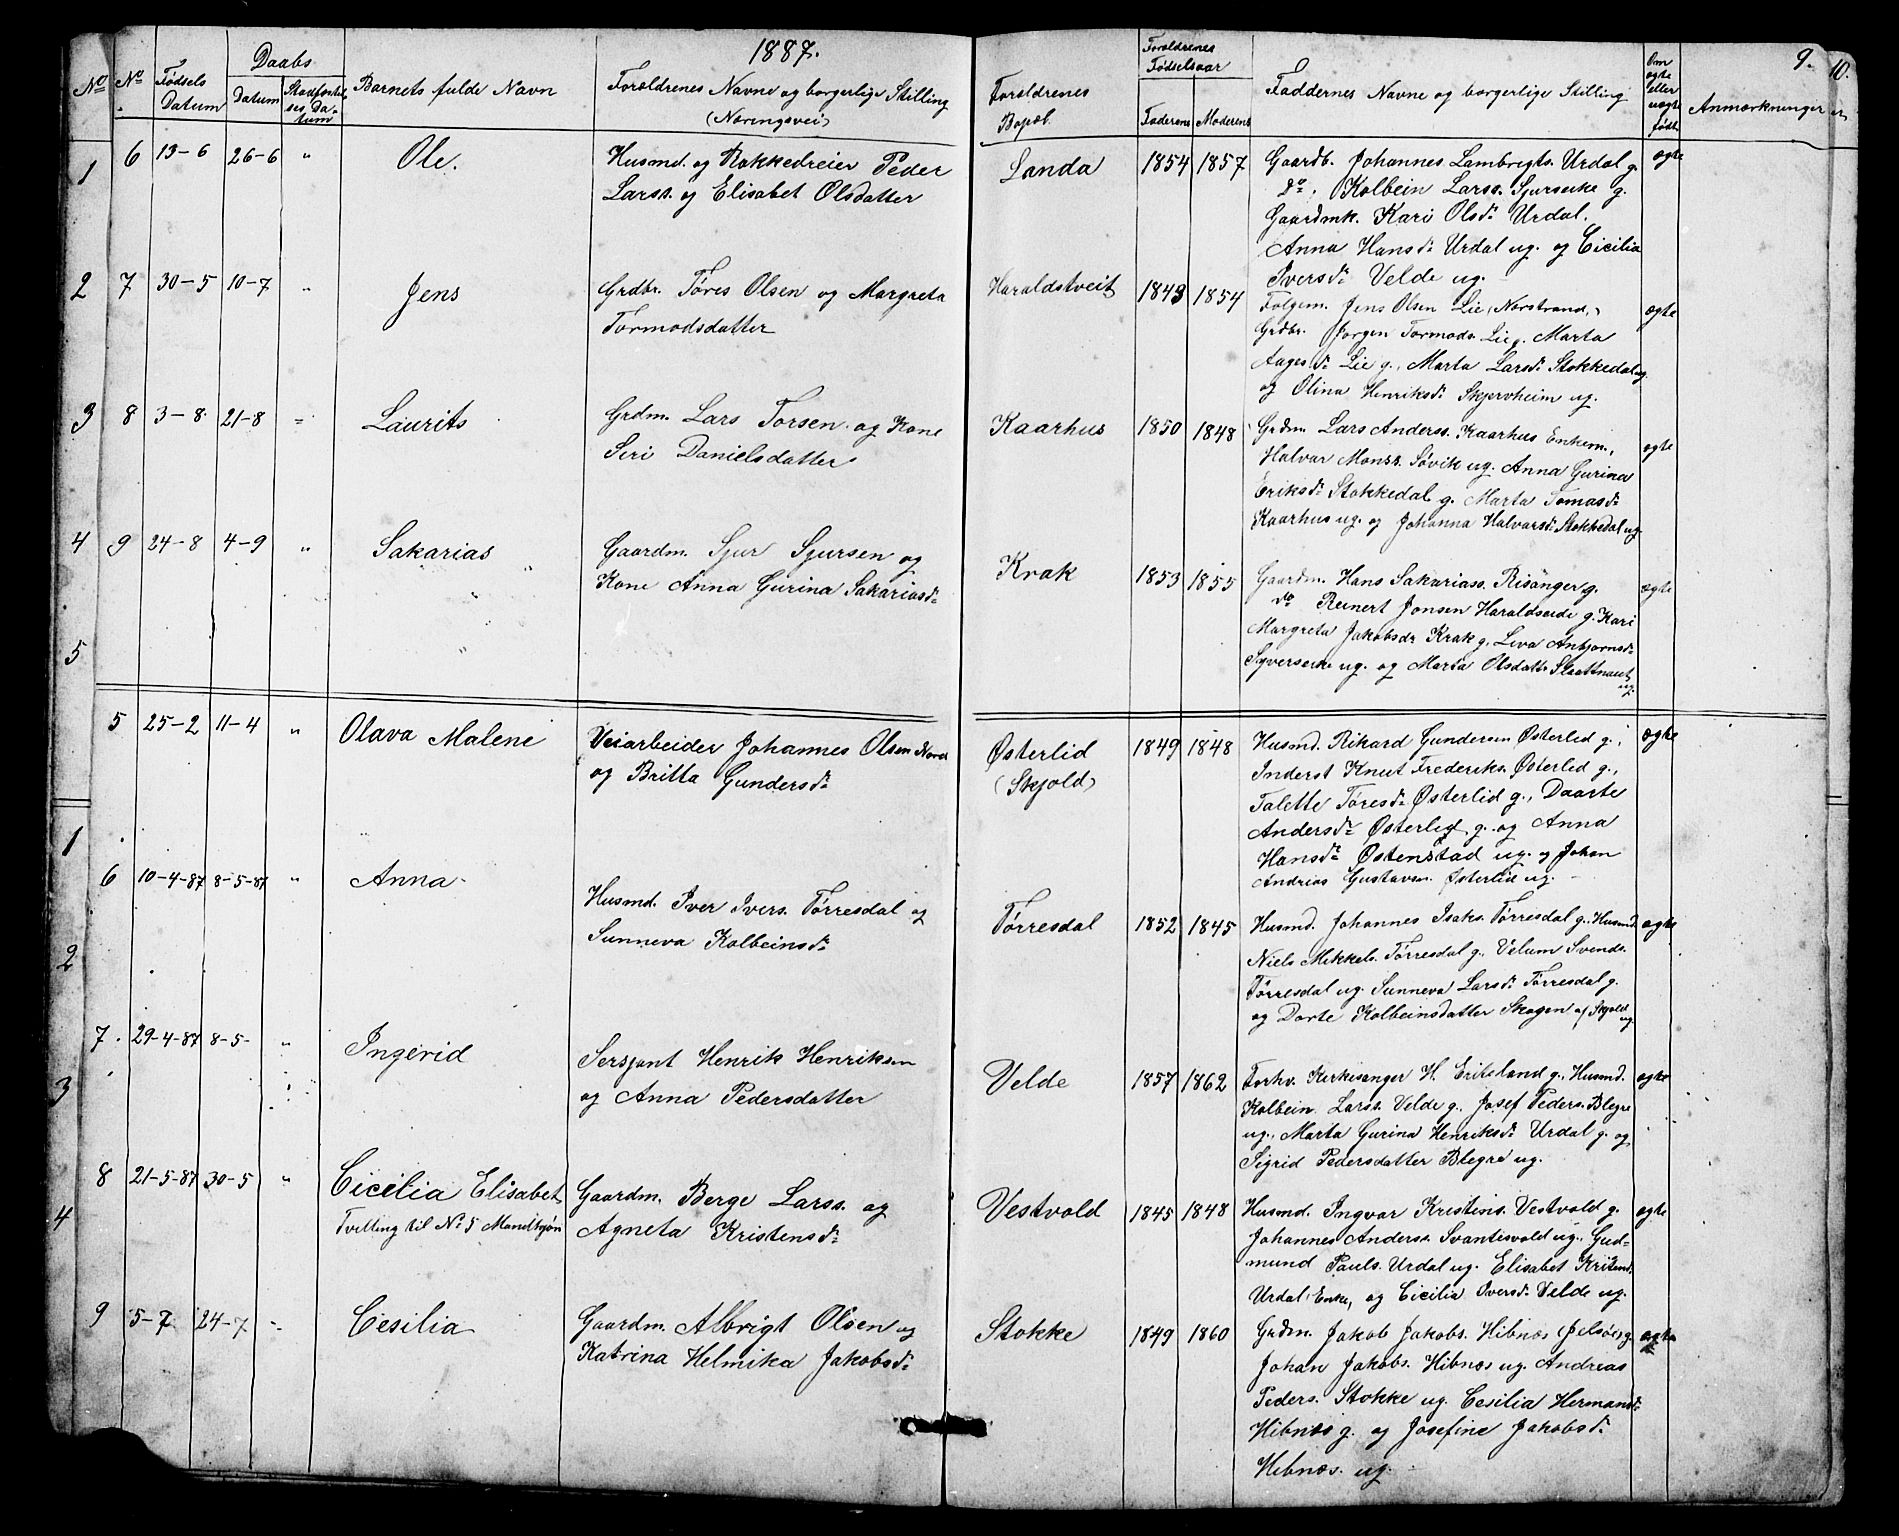 1887.
9.
10.
No
No
Fødsels Datum
Daabs
Datum
Stadfæstelses Datum
Barnets fulde Navn
Forældrenes Navne og borgerlige Stilling
(Næringsvei)
Forældrenes Bopæl.
Forældrenes Fødselsaar
Faderens
Moderens
Faddernes Navne og borgerlige Stilling
Om ægte eller uægte født
Anmærkninger
1
6 13-6 26-6 "
Ole.
Husmd. og Rokkedreier Peder
Larss. og Elisabet Olsdatter
Landa
1854 1857
Gaardb. Johannes Lambregts. Urdal g.
Do, Kolbein Larss. Sjurseike g.
Gaardmk. Kari Olsdr Urdal.
Anna Hansdr Urdal ug. og Cicilia
Iversdr Velde ug.
ægte
2
7 30-5 10-7 "
Jens
Grdbr. Tøres Olsen og Margreta
Tormodsdatter
Haraldstveit
1843 1854
Følgem. Jens Olsen Lie (Nerstrand,)
Grdbr. Jørgen Tormods. Lie g. Marta
Aagesdr Lie g., Marta Larsdr Stokkedal ug.
og Olina Henriksdr Skjervheim ug.
ægte
3
8 3-8 21-8 "
Laurits
Grdm. Lars Torsen og Kone
Siri Danielsdatter
Kaarhus
1850 1848
Grdm. Lars Anderss. Kaarhus Enkem.,
Halvar Monss. Søvik ug. Anna Gurina
Eriksdr Stokkedal g. Marta Tomasdr
Kaarhus ug. og Johanna Halvarsdr Stokkedal ug.
ægte
4
9 24-8 4-9 "
Sakarias
Gaardm. Sjur Sjursen og
Kone Anna Gurina Sakariasdr
Krak
1853 1855
Gaardm. Hans Sakariass. Risanger g.
do Reinert Jonsen Haraldseide g. Kari
Margreta Jakobsdr Krak g, Liva Anbjørnsdr
Syverseike ug. og Marta Olsdattr Slaattnaut
ug.
ægte
5
5 25-2 11-4 "
Olava Malene
Veiarbeider Johannes Olsen
og Britta Gundersdr
Østerlid
(Skjold)
1849 1848
Husmd. Rikard Gundersen Østerled g.,
Inderst Knut Frederiks. Østerlid g.,
Talette Tøresdr Østerlid g., Daarte
Andersdr Østerlid g. og Anna
Hansdr Østenstad ug. og Johan
Andrias Gustavsn. Østerlid ug.
ægte
1
6 10-4-87 8-5-87 "
Anna
Husmd. Iver Ivers. Tørresdal og
Sunneva Kolbeinsdr
Tørresdal
1852 1845
Husmd. Johannes Isaks. Tørresdal g., Husmd.
Niels Mikkels. Tørresdal g., Velum Svends.
Tørresdal ug. Sunneva Larsdr Tørresdal g.
og Dorte Kolbeinsdatter Skogen af Skjold
ug.
ægte
2
7. 29-4-87 8-5- "
Ingerid
Sersjant Henrik Henriksen
og Anna Pedersdatter
Velde
1857 1862
Forhv. Kirkesanger H. Erikeland g., Husmd.
Kolbein Larss. Velde g., Josef Peders. Blegre
ug., Marta Gurina Henriksdr Urdal g. og
Sigrid Pedersdatter Blegre ug.
ægte
3
8 21-5-87 30-5 "
Cicelia Elisabet
Tvilling til No 5 Mandkjøn
Gaardm. Berge Larss. og
Agneta Kristensdr
Vestvold
1845 1848
Husmd. Ingvar Kristens. Vestvold g.
Johannes Anderss. Svantesvold ug., Gud=
mund Pauls. Urdal ug. Elisabet
Urdal, Enke, og Cicilia Iversdr Velde ug.
ægte
4
9 5-7 24-7
Cesilia
Gaardm. Albrigt Olsen og
Katrina Helmika Jakobsdr
Stokke
1849 1860
Grdm. Jakob Jakobs. Hibnæs (Jelsøe) g.
Johan Jakobs. Hibnæs ug. Andreas
Peders. Stokke ug. Cesilia Hermansdr
Hibnæs g. og Josefine Jakobsdr
Hibnæs. ug.
ægte